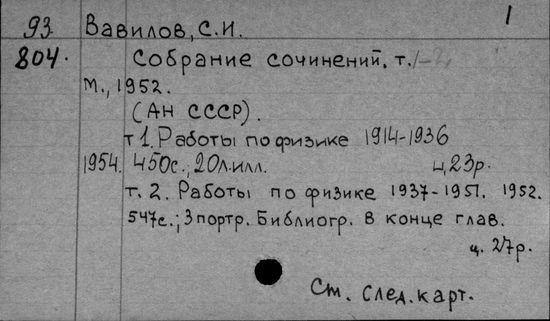 93 Вавилов, С.И. 1
804. Собрание сочинений, т. 1-2,
М., 1952.
(АН СССР).
т 1. Работы по физике 1914-1936
1954. 450с., 20л.илл. ц. 23р.
т. 2. Работы по физике 1937-1951. 1952.
547с.; 3 портр. Библиогр. в конце глав.
ц. 27р.
См. след. карт.